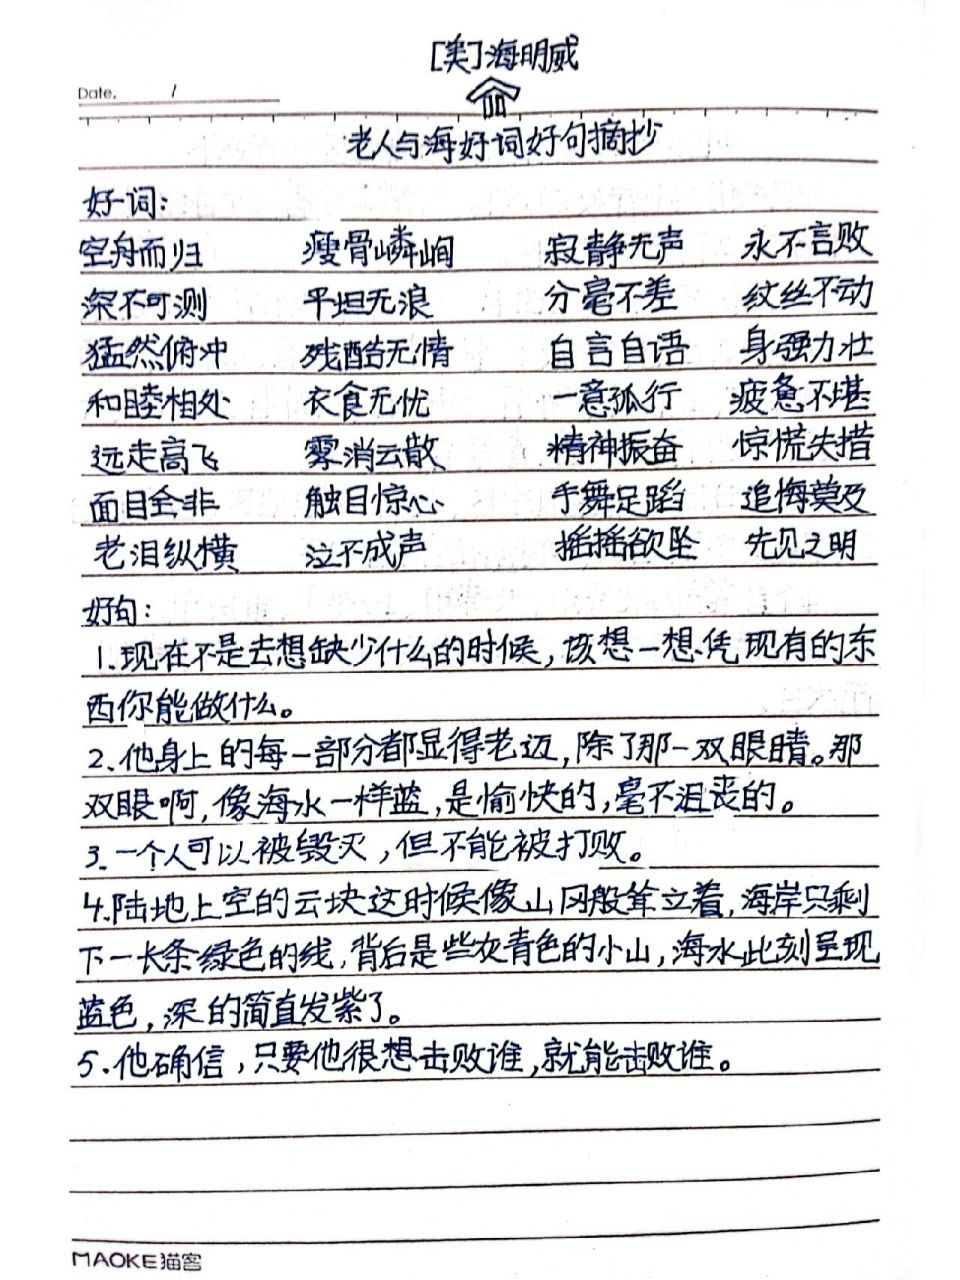 [美]海明威
Date. /
老人与海好词好句摘抄
好词:
空舟而归 瘦骨嶙峋 寂静无声 永不言败
深不可测 平坦无浪 分毫不差 纹丝不动
猛然俯冲 残酷无情 自言自语 身强力壮
和睦相处 衣食无忧 一意孤行 疲惫不堪
远走高飞 雾消云散 精神振奋 惊慌失措
面目全非 触目惊心 手舞足蹈 追悔莫及
老泪纵横 泣不成声 摇摇欲坠 先见之明
好句:
1.现在不是去想缺少什么的时候,该想一想凭现有的东
西你能做什么。
2.他身上的每一部分都显得老迈,除了那一双眼睛。那
双眼啊,像海水一样蓝,是愉快的,毫不沮丧的。
3.一个人可以被毁灭,但不能被打败。
4.陆地上空的云块这时候像山冈般耸立着,海岸只剩
下一长条绿色的线,背后是些灰青色的小山,海水此刻呈现
蓝色,深的简直发紫了。
5.他确信,只要他很想击败谁,就能击败谁。
MAOKE猫客